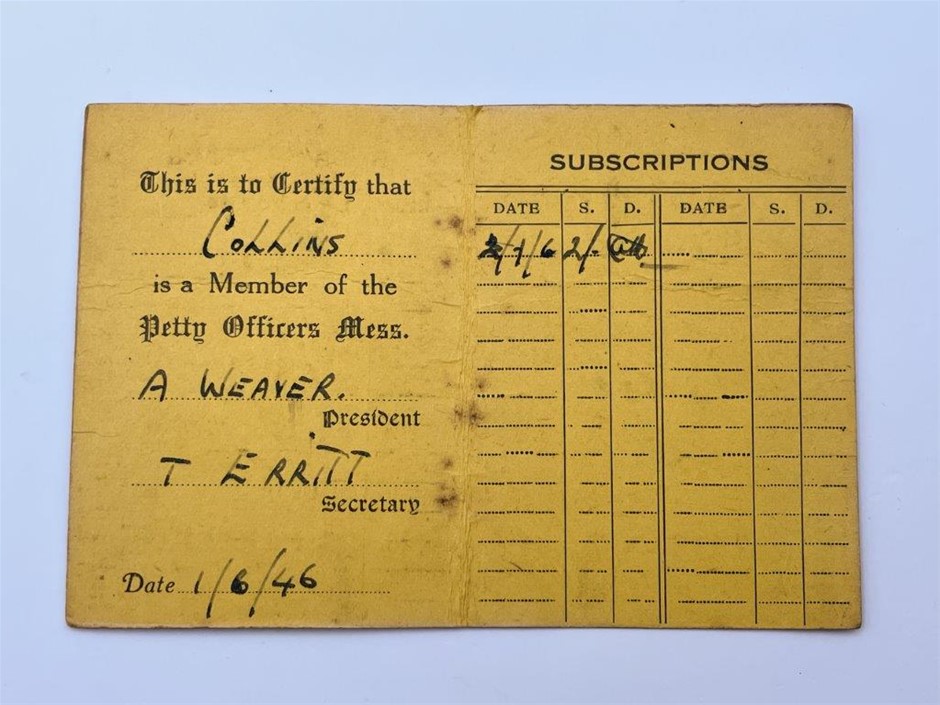 This is to Certify that
COLLINS
is a Member of the
Petty Officers Mess.
A WEAVER.
President
T ERRITT
Secretary
Date 1/6/46
SUBSCRIPTIONS
DATE S. D. DATE S. D.
2/1/6 2/-